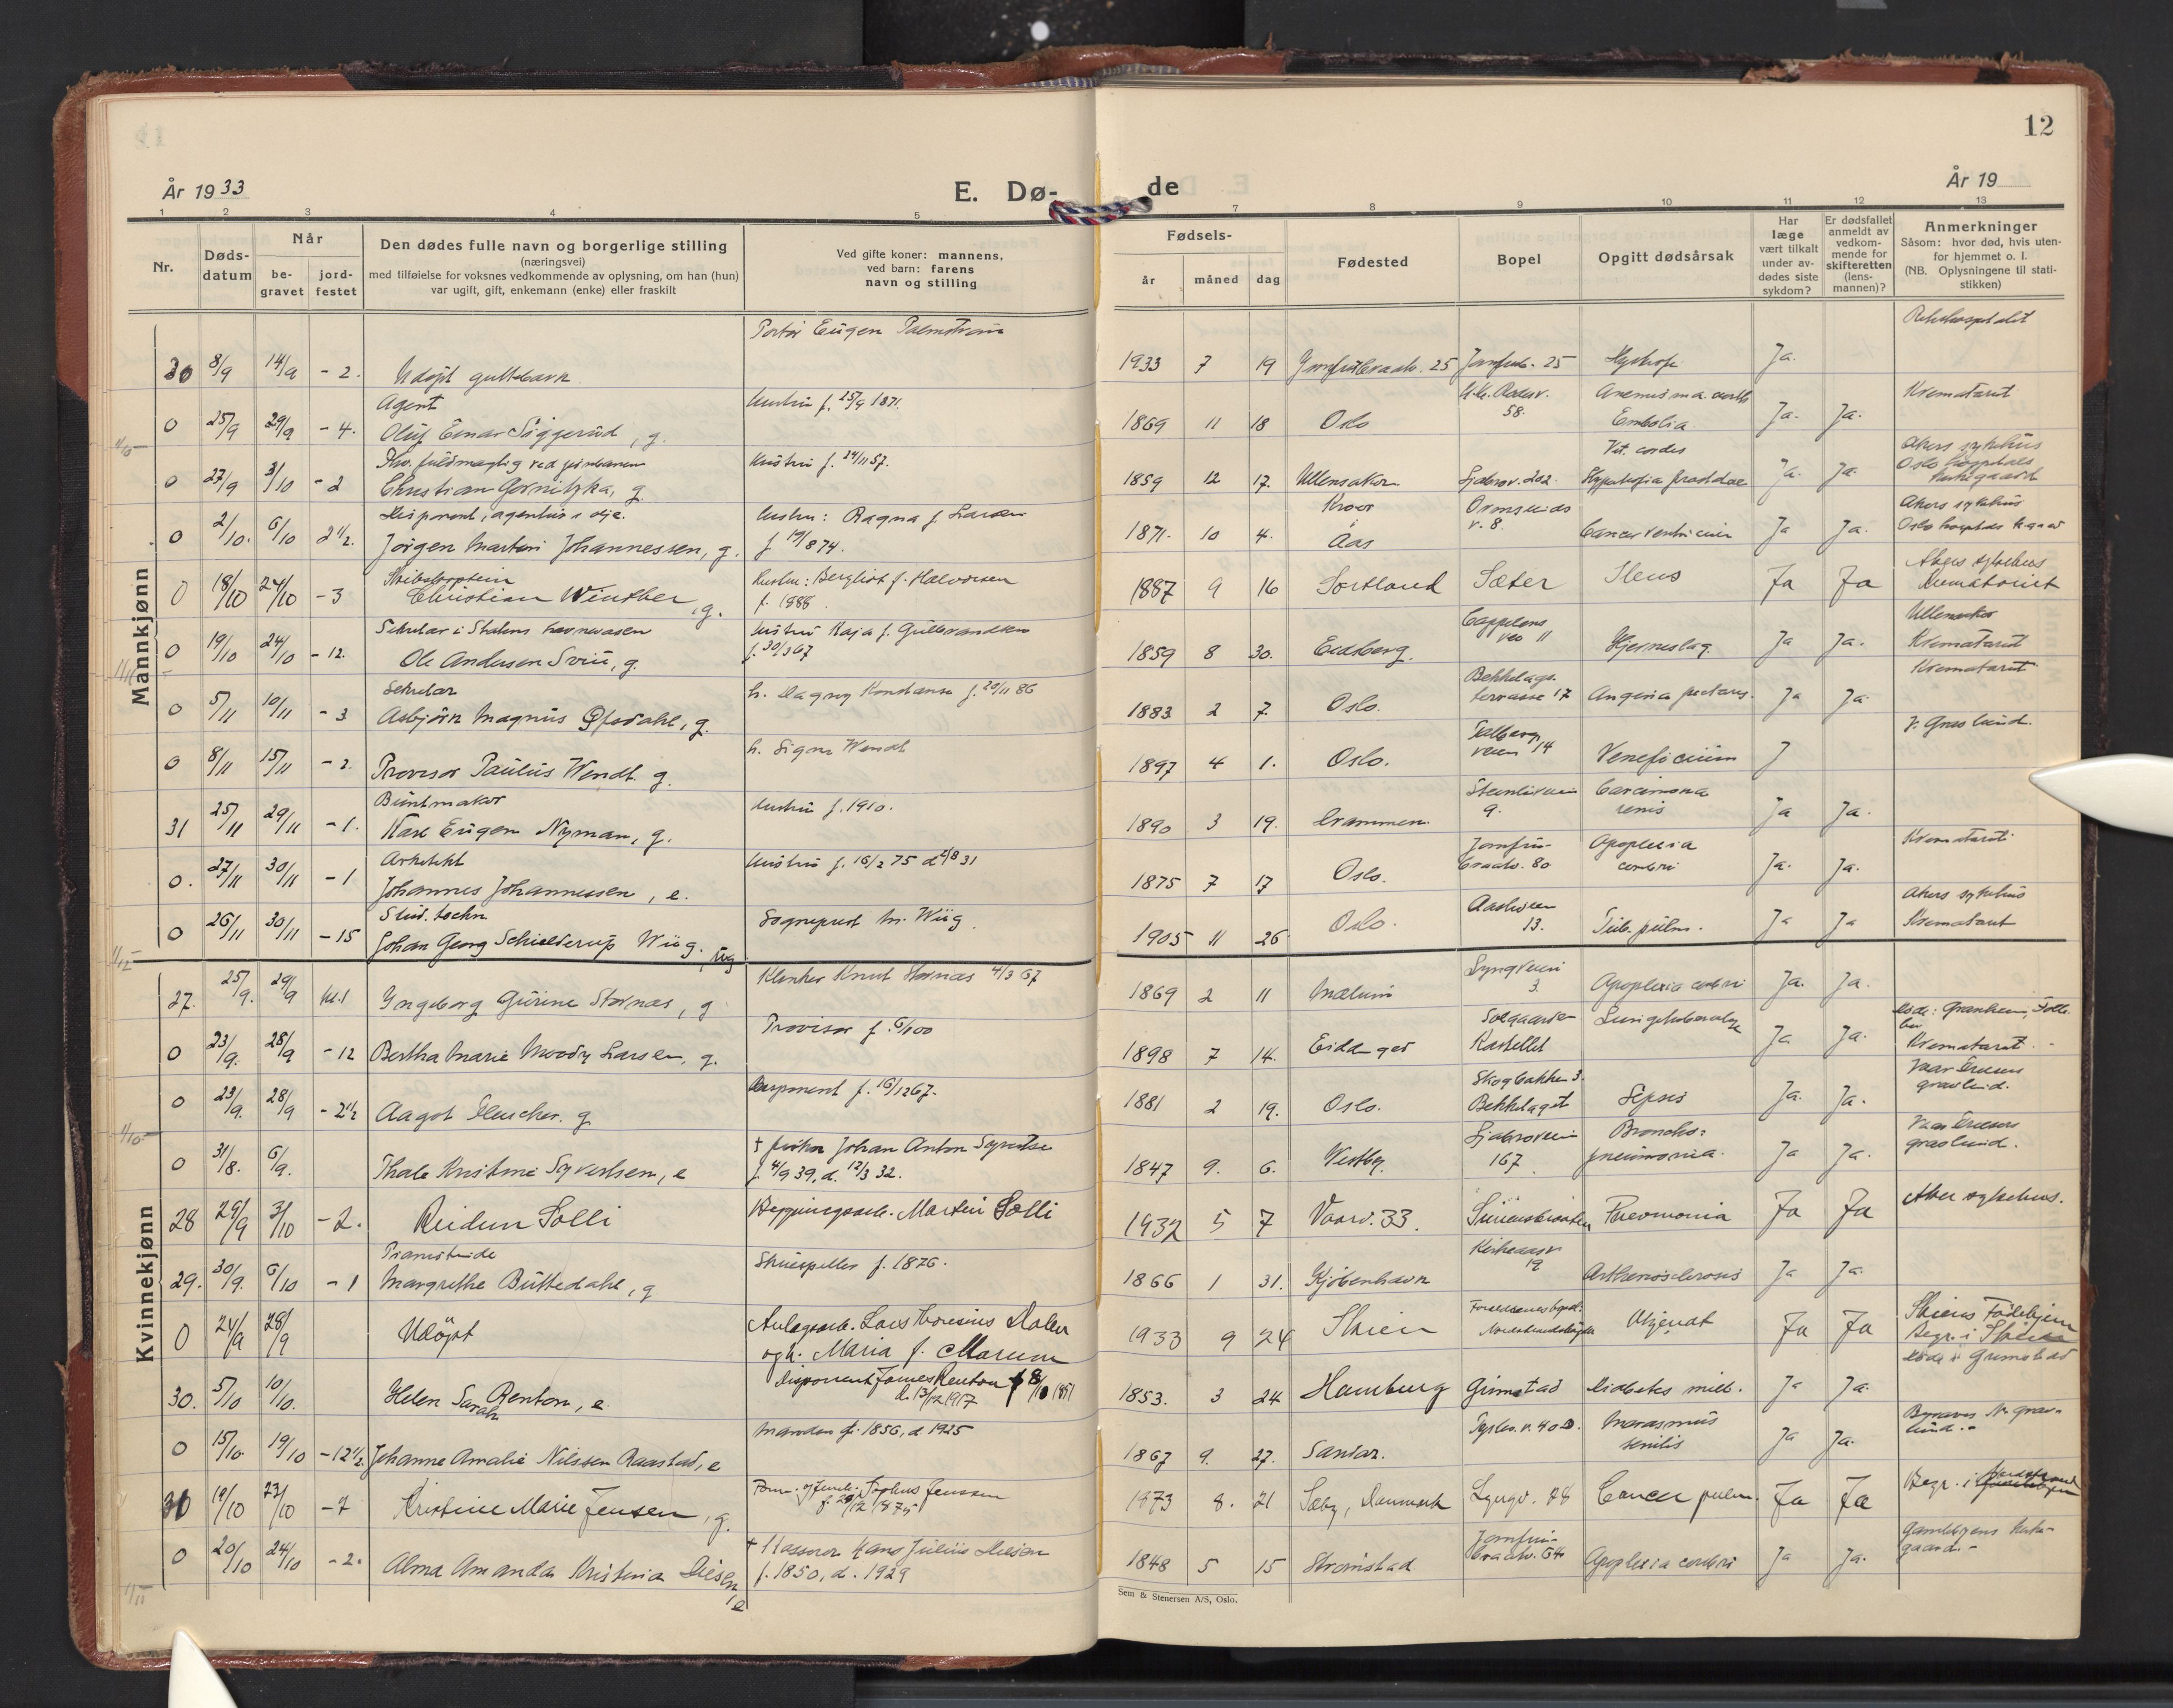 12
År 1933
E. Dø-
de
År 19
1 2 3 4 5 7 8 9 10 11 12 13
Nr.
Døds-
datum
Når
be-
gravet
jord-
festet
Den dødes fulle navn og borgerlige stilling
(næringsvei)
med tilføielse for voksnes vedkommende av oplysning, om han (hun)
var ugift, gift, enkemann (enke) eller fraskilt
Ved gifte koner: mannens,
ved barn: farens
navn og stilling
Fødsels-
år måned dag
Fødested
Bopel
Opgitt dødsårsak
Har
læge
vært tilkalt
under av-
dødes siste
sykdom?
Er dødsfallet
anmeldt av
vedkom-
mende for
skifteretten
(lens-
mannen)?
Anmerkninger
Såsom: hvor død, hvis uten-
for hjemmet o. l.
(NB. Oplysningene til stati-
stikken)
Mannkjønn
Portør Eugen Palmstrøm
30 8/9 14/9 - 2. Udøpt guttebarn 1933 7 19 Ja.
Agent
Hustru f. 25/9 1871.
58.
0 25/9 29/9 - 4. Oluf Einar Siggerud, g. 1869 11 18 Oslo Embolia Ja. Ja. Krematoriet
Hustru f. 24/11 57.
Vit. cordis
Akers sykehus
0 27/9 3/10 - 2 Christian Gornitzka, g. 1859 12 17. Ullensaker Ljabrov. 202. Ja. Ja.
Hustru: Ragna f. Larsen
Kroer
Ormsunds
v. 8.
Akers sykehus
0 2/10. 6/10 2 1/2. Jørgen Martin Johannessen, g. f 19/8 74. 1871. 10 4. Ås Cancer ventriculi Ja Ja.
Skibskaptein
Hustru: Bergliot f. Halvorsen
Akers sykehus
0 18/10 24/10 - 3 Christian Winther, g. f. 1888. 1887 9 16 Sortland Sæter Ileus Ja Ja Krematoriet
Sekretær i Statens havnevesen
Hustru Kaja f. Gulbrandsen
Cappelens
vei 11
0 19/10 24/10 - 12. Ole Andersen Sviu, g. f. 30/3 67 1859 8 30. Eidsberg. Hjerneslag. Ja Ja. Krematoriet
Sekretær
Bekkelags-
terrasse 17
Krematoriet
0 5/11 10/11 - 3 Asbjørn Magnus Opsdahl, g. h. Dagny Konstanse f. 20/11 86 1883 2 7. Oslo. Angina pectoris. Ja Ja.
h. Signe Wendt
veien 14
0 8/11 15/11 - 2. Provisor Paulus Wendt g. 1897 4 1. Oslo. Veneficium J
Buntmaker
Hustru f. 1910.
9.
Carcinoma
renis
31 25/11 29/11 - 1. Karl Eugen Nyman, g. 1890 3 19. Drammen. Ja Ja.
Arkitekt
Hustru f. 16/2 75 d 2/8 31
Jomfru-
braatv. 80
Apoplexia
cerebri
Krematoriet
0. 27/11 30/11 - 1 Johannes Johannessen, e. 1875 7 17 Oslo. Ja. Ja.
Stud. techn.
Sogneprest M. Wiig
13.
Akers sykehus
0 26/11 30/11 - 15 Johan Georg Schielderup Wiig, ug 1905 11 26 Oslo. Tub. pulm. Ja Ja Krematoriet
Kvinnekjønn
Lyngveien
3.
27. 25/9. 29/9 kl. 1 Yngeborg Gurine Stornæs, g Knut Stornæs 4/3 67 1869 2 11 Mælum Apoplexia cerebri Ja. Ja.
Provisor f. 6/1 00
Solgaarden
Kastellet
0 23/9. 28/9 - 12 Bertha Marie Moody Larsen, g. 1898 7 14. Eidanger Ja Ja. Krematoriet.
Disponent f. 16/12 67.
Skogbakken 3.
Bekkelaget
Vaar Frelsers
gravlund.
0 23/9. 28/9 - 2 1/2 Aagot Fleischer. g 1881 2 19. Oslo. Sepsis Ja. Ja.
† Johan Anton Syvertsen
f. 4/9 39, d. 12/3 32.
Ljabroveien
167
Broncho-
pneumonia.
Vaar Frelsers
gravlund.
0 31/8. 6/9. Thale Kristine Syvertsen, e 1847 9. 6. Vestby. Ja Ja.
28 29/9 3/10 - 2. Reidun Solli Martin Solli 1932 5 7 Vaarv. 33. Pneumonia Ja Ja Aker sykehus.
Pianistinde
Skuespiller f. 1876.
19
29. 30/9. 6/10 - 1 Margrethe Buttedahl, g 1866 1 31. Kjøbenhavn Arteriosclerosis Ja Ja.
0 24/9 28/9 Udøpt
og h. Maria f.
1933 9 24 Skien Ja Ja
Skiens Fødehjem
Begr. i Skien
Disponent James Renton f 8/10 1851
d. 13/12 1917
Døde i Grimstad
30. 5/10 10/10. Helen Sarah Renton, e. 1853. 3 24 Hamburg Grimstad Diabetes mell. Ja Ja.
Manden f. 1856, d 1925
Marasmus
senilis
0 15/10. 19/10 - 12 1/2. Johanne Amalie Nilssen Raastad, e 1867 9. 27. Sandar. Ja Ja.
Sophus Jenssen
f. 29/12 1875
31 19/10 23/10 - 2 Kristine Marie Jensen, g. 1873 8. 21 Sæby, Danmark Lyngv. 28 Cancer pulm. Ja Ja Begr. i
† Hans Julius Diesen
f. 1850, d. 1929
Jomfru-
braatv. 64
Gamlebyens kirke-
gaard.-
0 20/10 24/10 - 2. Alma Amanda Kristina Diesen, e 1848 5 15 Strømstad Apoplexia cerebri Ja Ja.
Sem & Stenersen A/S, Oslo.